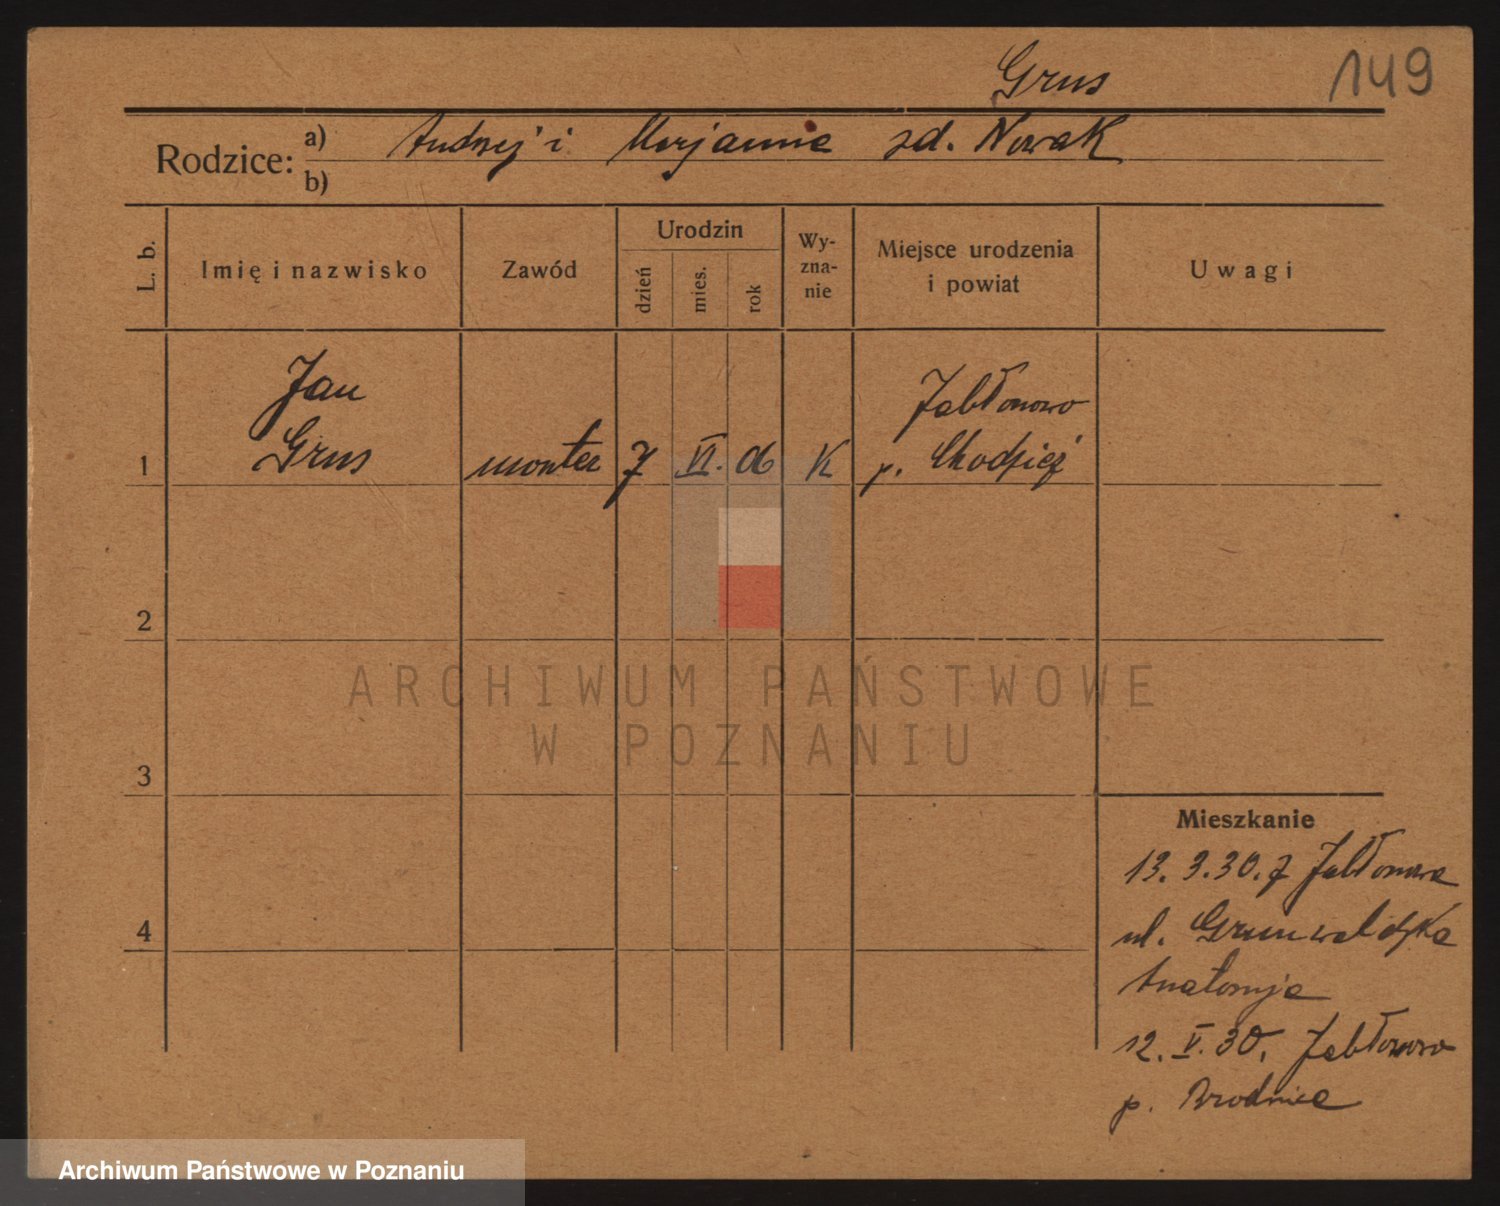 Grus
149
Rodzice:
a) Andrzej i Marjanna zd. Nowak
b)
L. b.
Imię i nazwisko
Zawód
Urodzin
dzień
mies.
rok
Wy-
zna-
nie
Miejsce urodzenia
i powiat
Uwagi
Jan
Grus
1
monter
7
VI.
06
K
Jabłonowo
p. Chodzież
2
ARCHIWUM PAŃSTWOWE
W POZNANIU
3
4
Mieszkanie
13. 3. 30. z Jabłonowa
ul. Grunwaldzka
Anatomja
12. V. 30. Jabłonowo
p. Brodnica
Archiwum Państwowe w Poznaniu